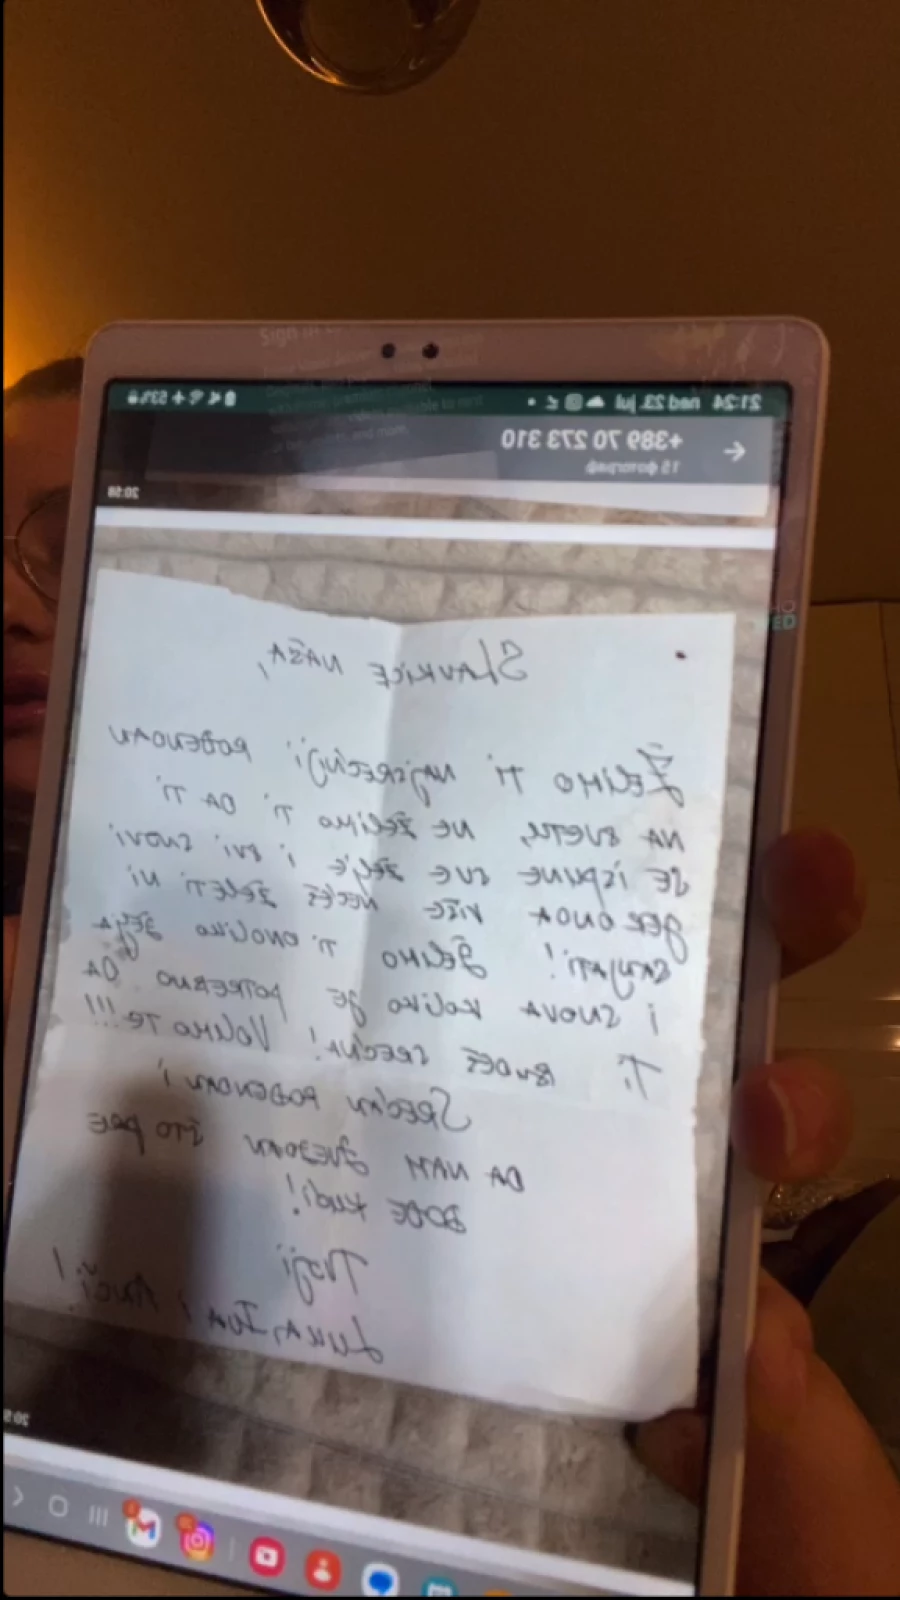 21:24 ned 23. jul
53%
+389 70 273 310
15 фотографија
20:58
SLAVKICE NAŠA,
ŽELIMO TI NAJSREĆNIJI ROĐENDAN
NA SVETU, NE ŽELIMO TI DA TI
SE ISPUNE SVE ŽELJE I SVI SNOVI
JER ONDA VIŠE NEĆEŠ ŽELETI NI
SANJATI! ŽELIMO TI ONOLIKO ŽELJA
I SNOVA KOLIKO JE POTREBNO DA
TI BUDEŠ SREĆNA! VOLIMO TE!!!
SREĆAN ROĐENDAN I
DA NAM ZVEZDAN ŠTO PRE
DOĐE KUĆI!
TVOJI
LUKA, IVA I ANČI!